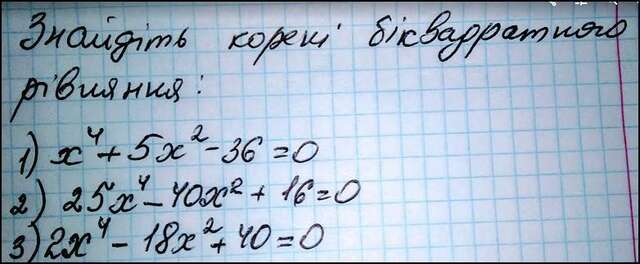 Знайдіть корені біквадратного
рівняння:
1) x⁴ + 5x² - 36 = 0
2) 25x⁴ - 40x² + 16 = 0
3) 2x⁴ - 18x² + 40 = 0